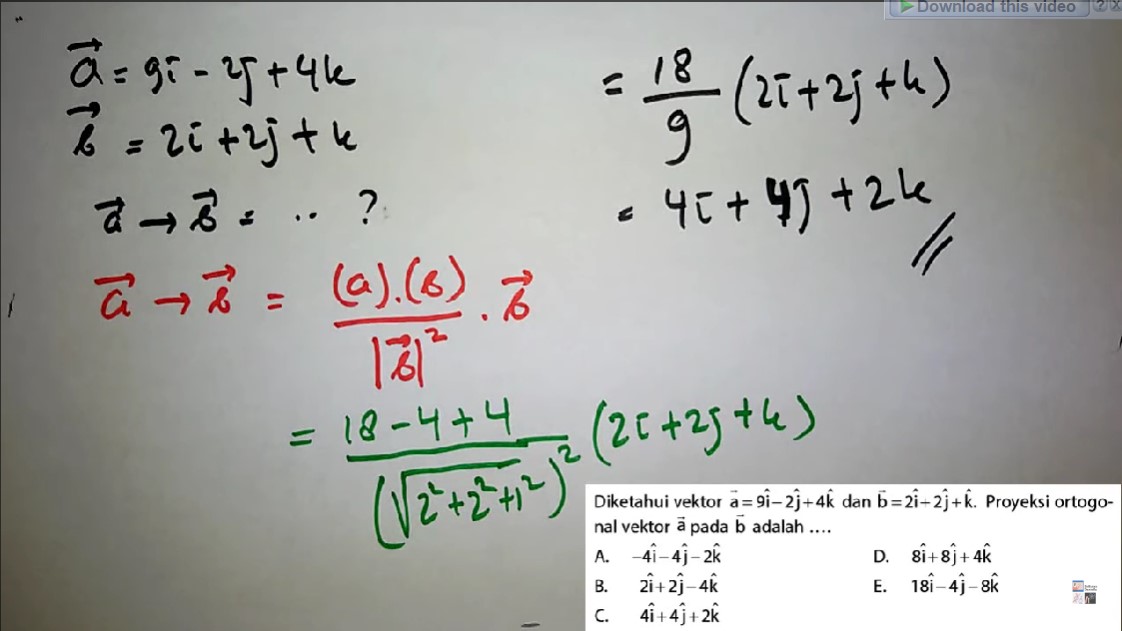 Download this video ? X
a⃗ = 9i - 2j + 4k
b⃗ = 2i + 2j + k
a⃗ → b⃗ = .. ?
a⃗ → b⃗ = (a).(b) / |b⃗|² . b⃗
= 18 - 4 + 4 / (√2² + 2² + 1²)² (2i + 2j + k)
= 18 / 9 (2i + 2j + k)
= 4i + 4j + 2k //
Diketahui vektor a⃗ = 9î − 2ĵ + 4k̂ dan b⃗ = 2î + 2ĵ + k̂. Proyeksi ortogo-
nal vektor a⃗ pada b⃗ adalah ....
A. −4î − 4ĵ − 2k̂
B. 2î + 2ĵ − 4k̂
C. 4î + 4ĵ + 2k̂
D. 8î + 8ĵ + 4k̂
E. 18î − 4ĵ − 8k̂